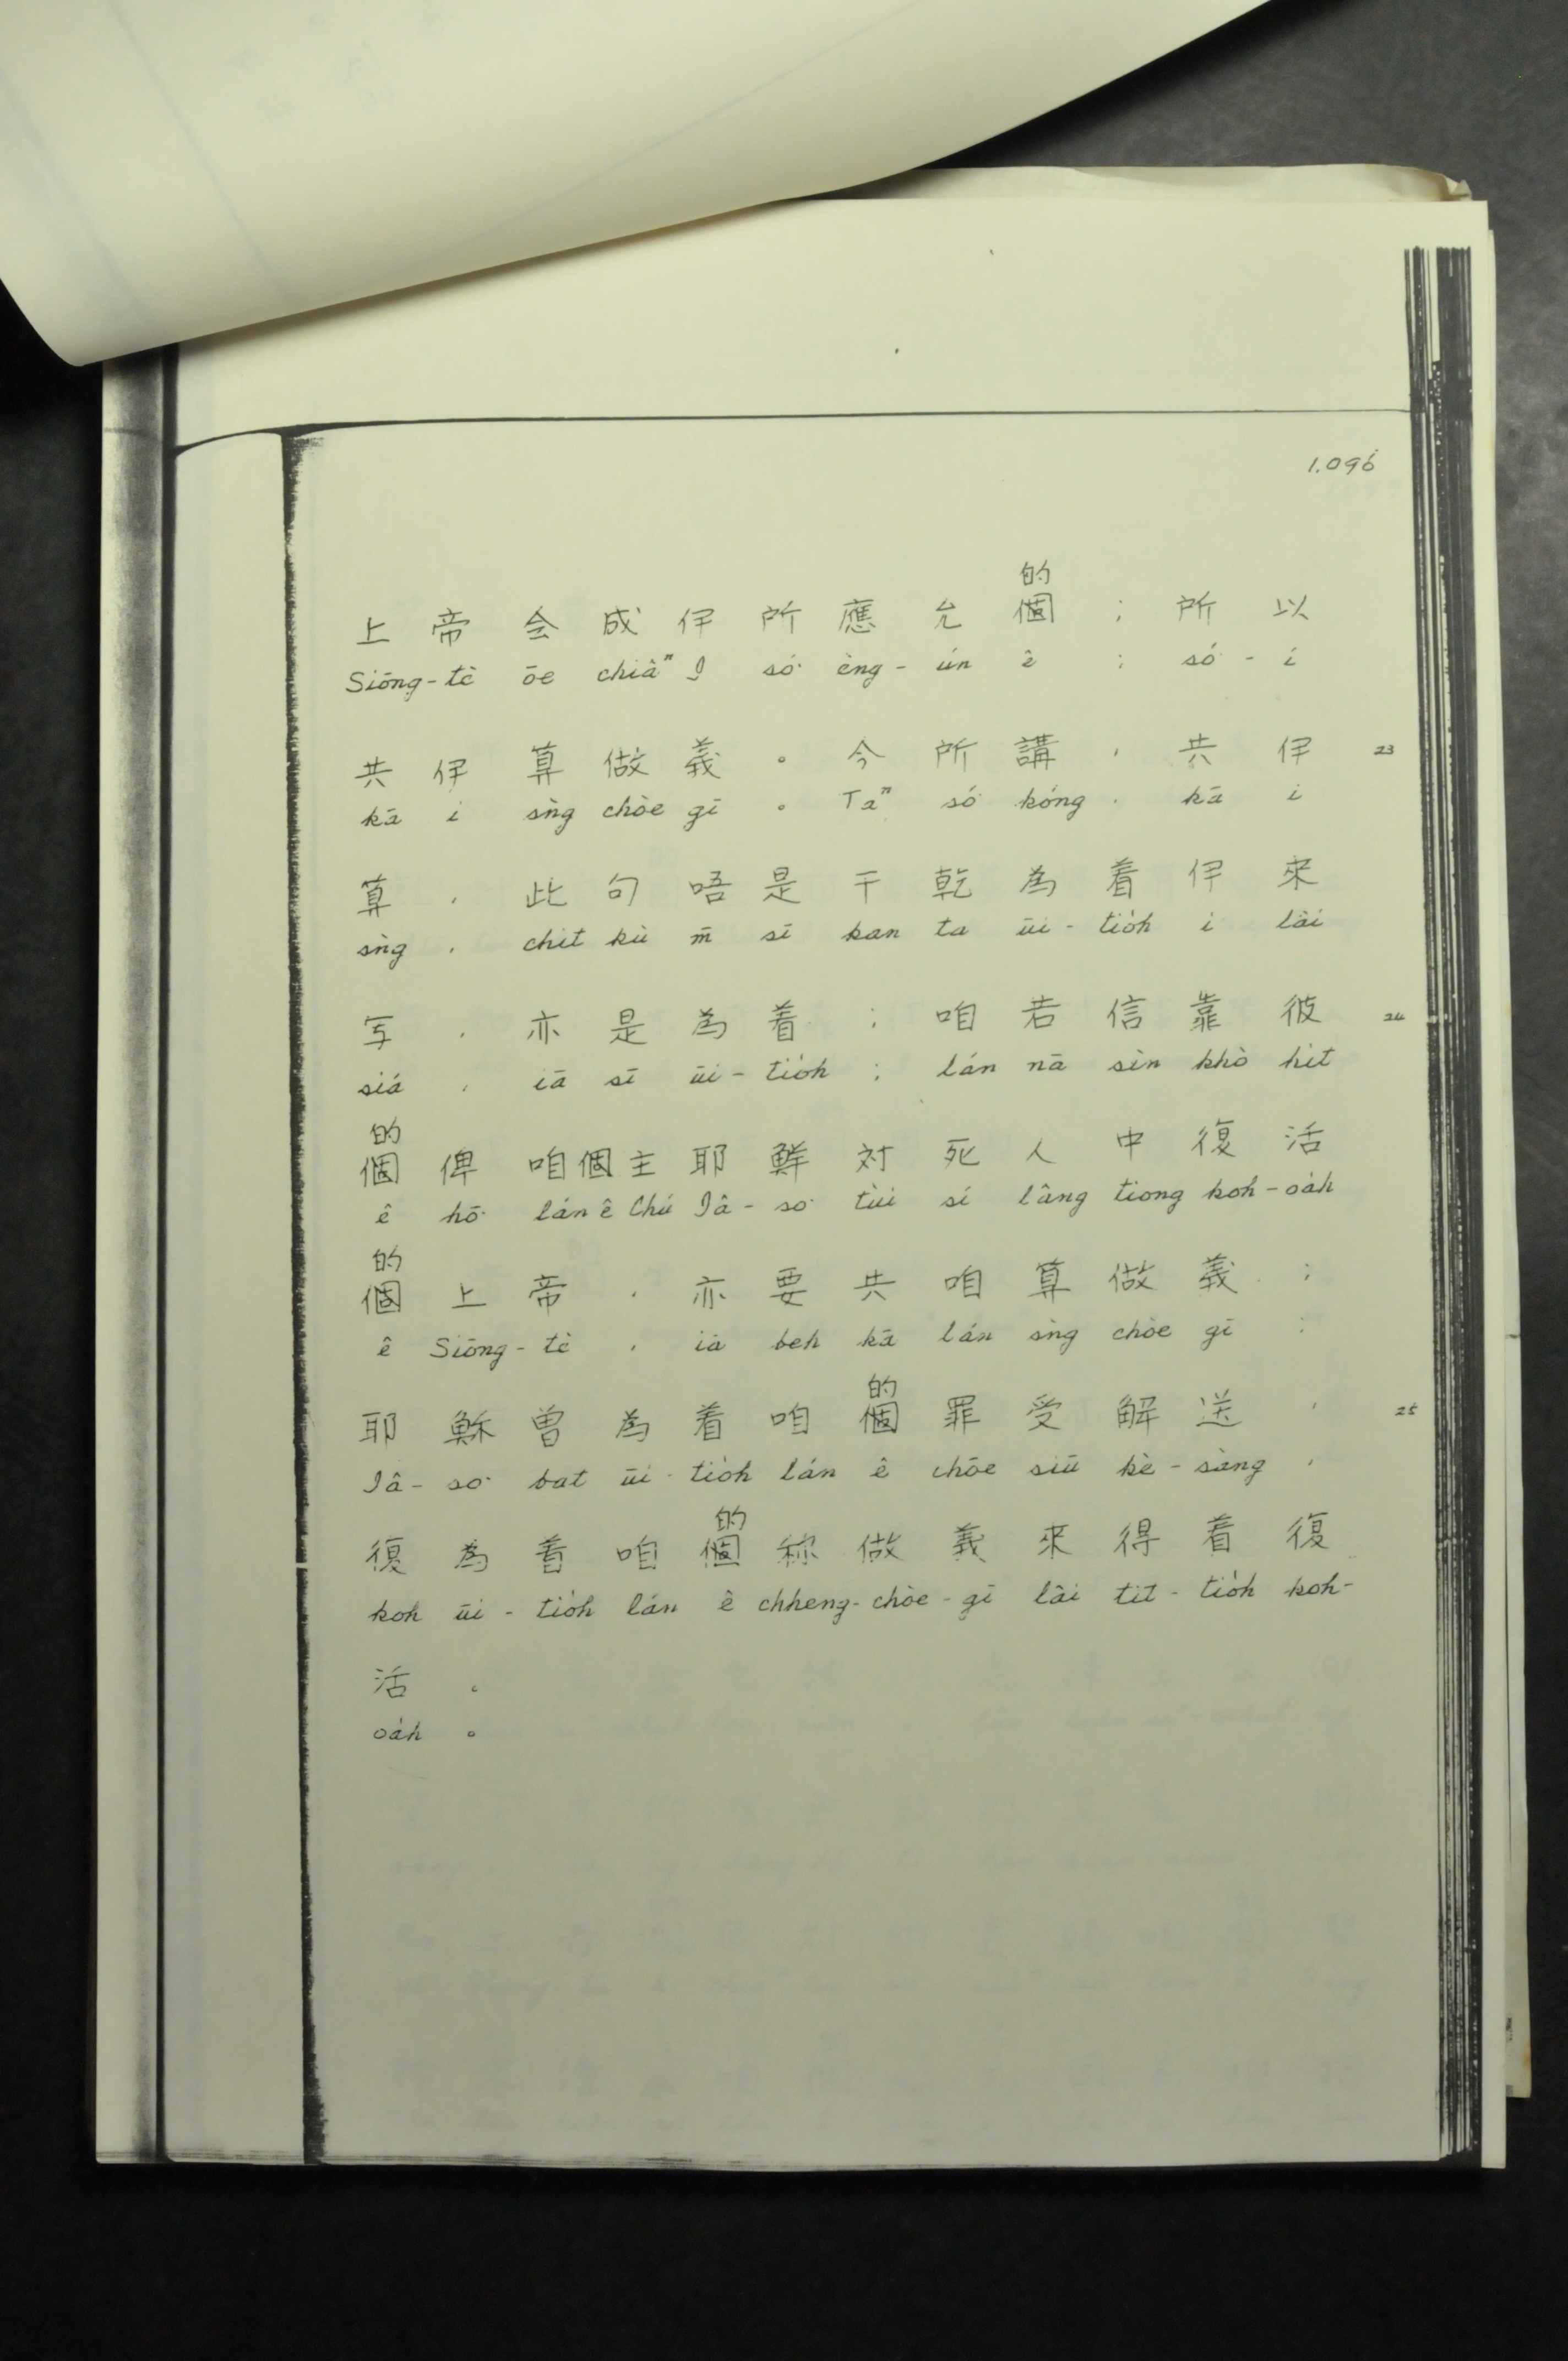 1.096
的
上帝会成伊所應允個；所以
Siōng-tè ōe chiâⁿ I só͘ èng-ún ê ; só͘-í
共伊算做義。今所講，共伊 23
kā i sǹg chòe gī 。 Taⁿ só͘ kóng , kā i
算，此句唔是干乾為着伊來
sǹg , chit kù m̄ sī kan ta ūi-tio̍h i lâi
写，亦是為着；咱若信靠彼 24
siá , iā sī ūi-tio̍h ; lán nā sìn khò hit
的
個俾咱個主耶鮮対死人中復活
ê hō͘ lán ê Chú Iâ-so͘ tùi sí lâng tiong koh-oa̍h
的
個上帝，亦要共咱算做義；
ê Siōng-tè , iā beh kā lán sǹg chòe gī ;
的
耶穌曽為着咱個罪受解送， 25
Iâ-so͘ bat ūi-tio̍h lán ê chōe siū kè-sàng ,
的
復為着咱個称做義來得着復
koh ūi-tio̍h lán ê chheng-chòe-gī lâi tit-tio̍h koh-
活。
oa̍h 。